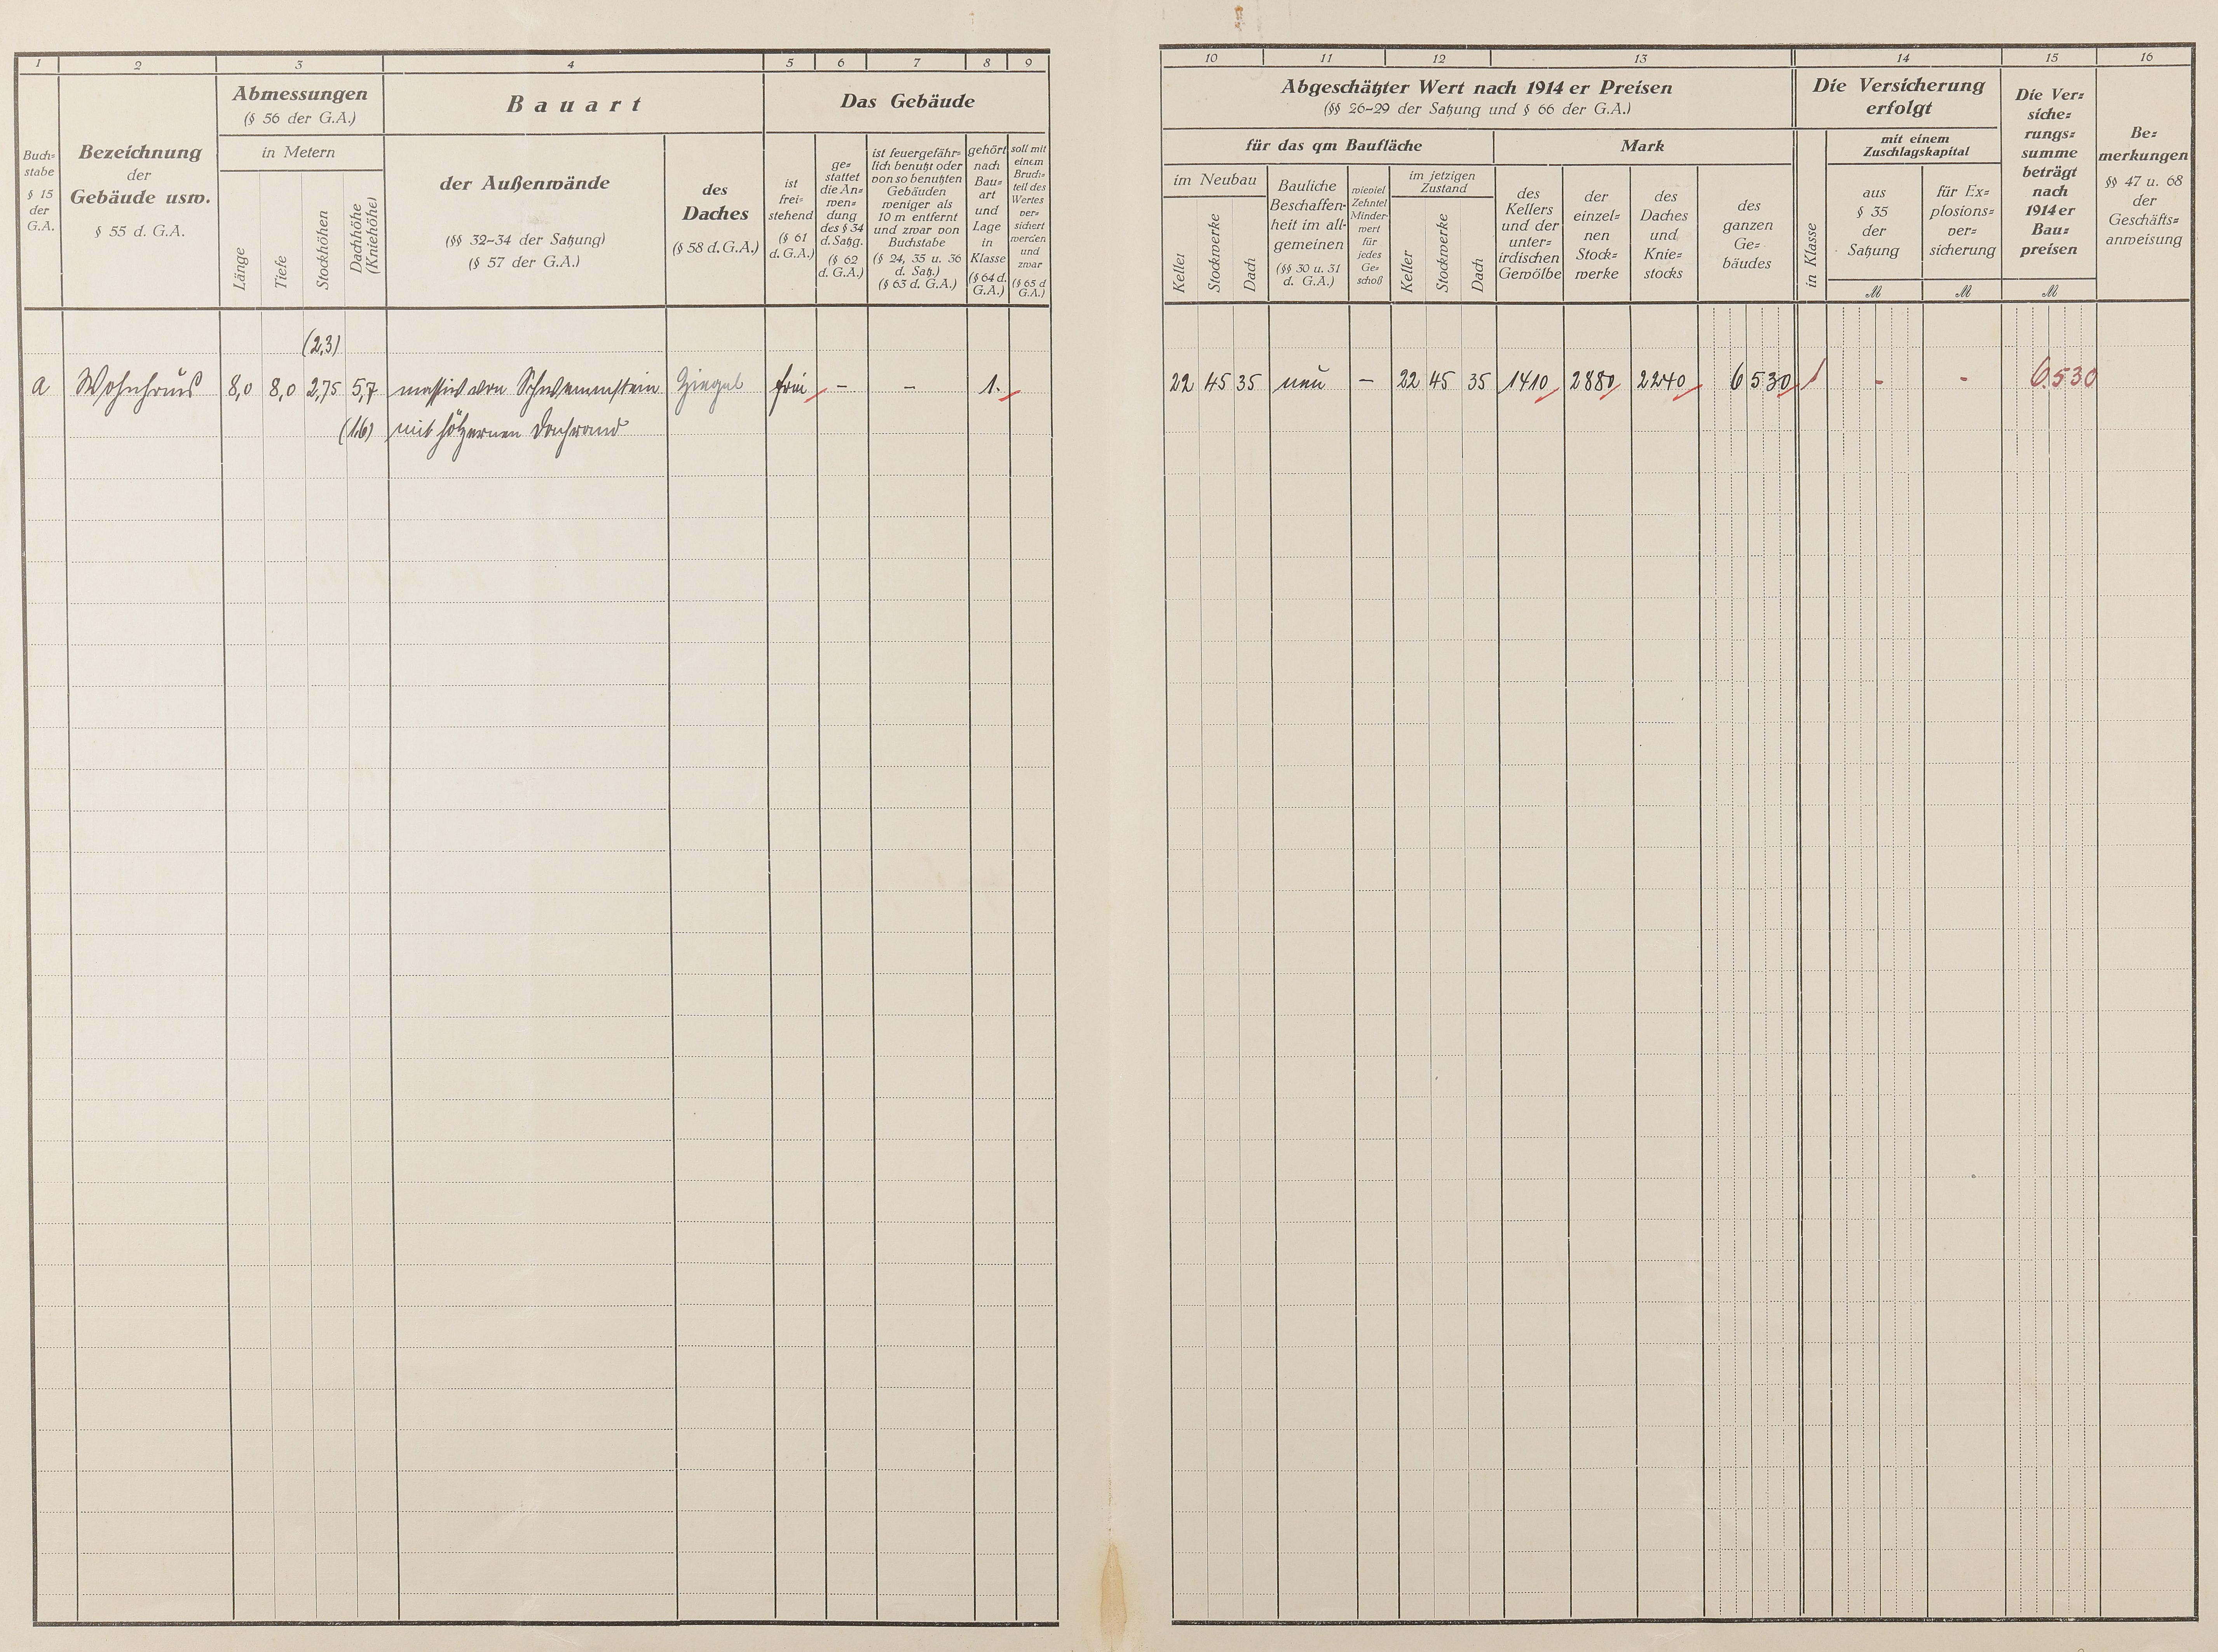 1 2 3 4 5 6 7 8 9
Buch=
stabe
§ 15
der
G.A.
Bezeichnung
der
Gebäude usw.
§ 55 d. G.A.
Abmessungen
(§ 56 der G.A.)
in Metern
Länge
Tiefe
Stockhöhen
Dachhöhe
(Kniehöhe)
Bauart
der Außenwände
(§§ 32–34 der Satzung)
(§ 57 der G.A.)
des
Daches
(§ 58 d. G.A.)
Das Gebäude
ist
frei=
stehend
(§ 61
d. G.A.)
ge=
stattet
die An=
wen=
dung
des § 34
d. Satzg.
(§ 62
d. G.A.)
ist feuergefähr=
lich benutzt oder
von so benutzten
Gebäuden
weniger als
10 m entfernt
und zwar von
Buchstabe
(§ 24, 35 u. 36
d. Satz.)
(§ 63 d. G.A.)
gehört
nach
Bau=
art
und
Lage
in
Klasse
(§ 64 d.
G.A.)
soll mit
einem
Bruch=
teil des
Wertes
ver=
sichert
werden
und
zwar
(§ 65 d
G.A.)
(2,3)
a Wohnhaus 8,0 8,0 2,75 5,7 massiv von Schwemmstein Ziegel frei – – 1.
(1.6) mit hölzernen Dachrand
10 11 12 13 14 15 16
Abgeschätzter Wert nach 1914 er Preisen
(§§ 26–29 der Satzung und § 66 der G.A.)
für das qm Baufläche
im Neubau
Keller
Stockwerke
Dach
Bauliche
Beschaffen-
heit im all-
gemeinen
(§§ 30 u. 31
d. G.A.)
wieviel
Zehntel
Minder-
wert
für
jedes
Ge=
schoß
im jetzigen
Zustand
Keller
Stockwerke
Dach
Mark
des
Kellers
und der
unter=
irdischen
Gewölbe
der
einzel=
nen
Stock=
werke
des
Daches
und
Knie=
stocks
des
ganzen
Ge=
bäudes
Die Versicherung
erfolgt
in Klasse
mit einem
Zuschlagskapital
aus
§ 35
der
Satzung
ℳ
für Ex=
plosions=
ver=
sicherung
ℳ
Die Ver=
siche=
rungs=
summe
beträgt
nach
1914 er
Bau=
preisen
ℳ
Be=
merkungen
§§ 47 u. 68
der
Geschäfts=
anweisung
22 45 35 neu – 22 45 35 1410 2880 2240 6530 1 - - 6.530